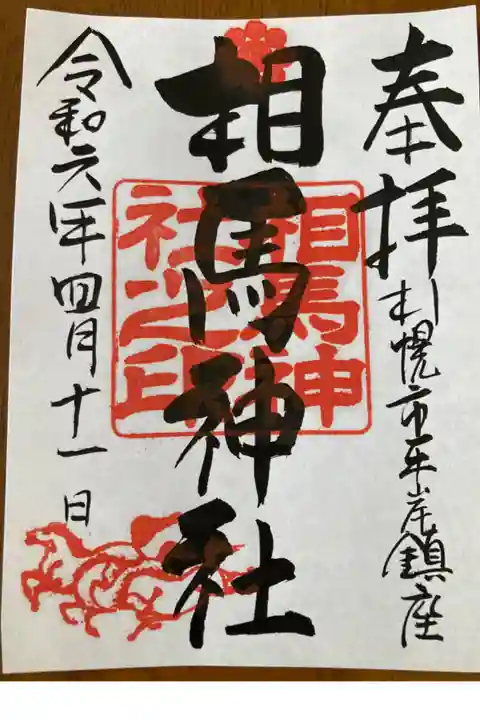 奉拝
札幌市平岸鎮座
相馬神社
相馬神社之印
令和六年四月十一日